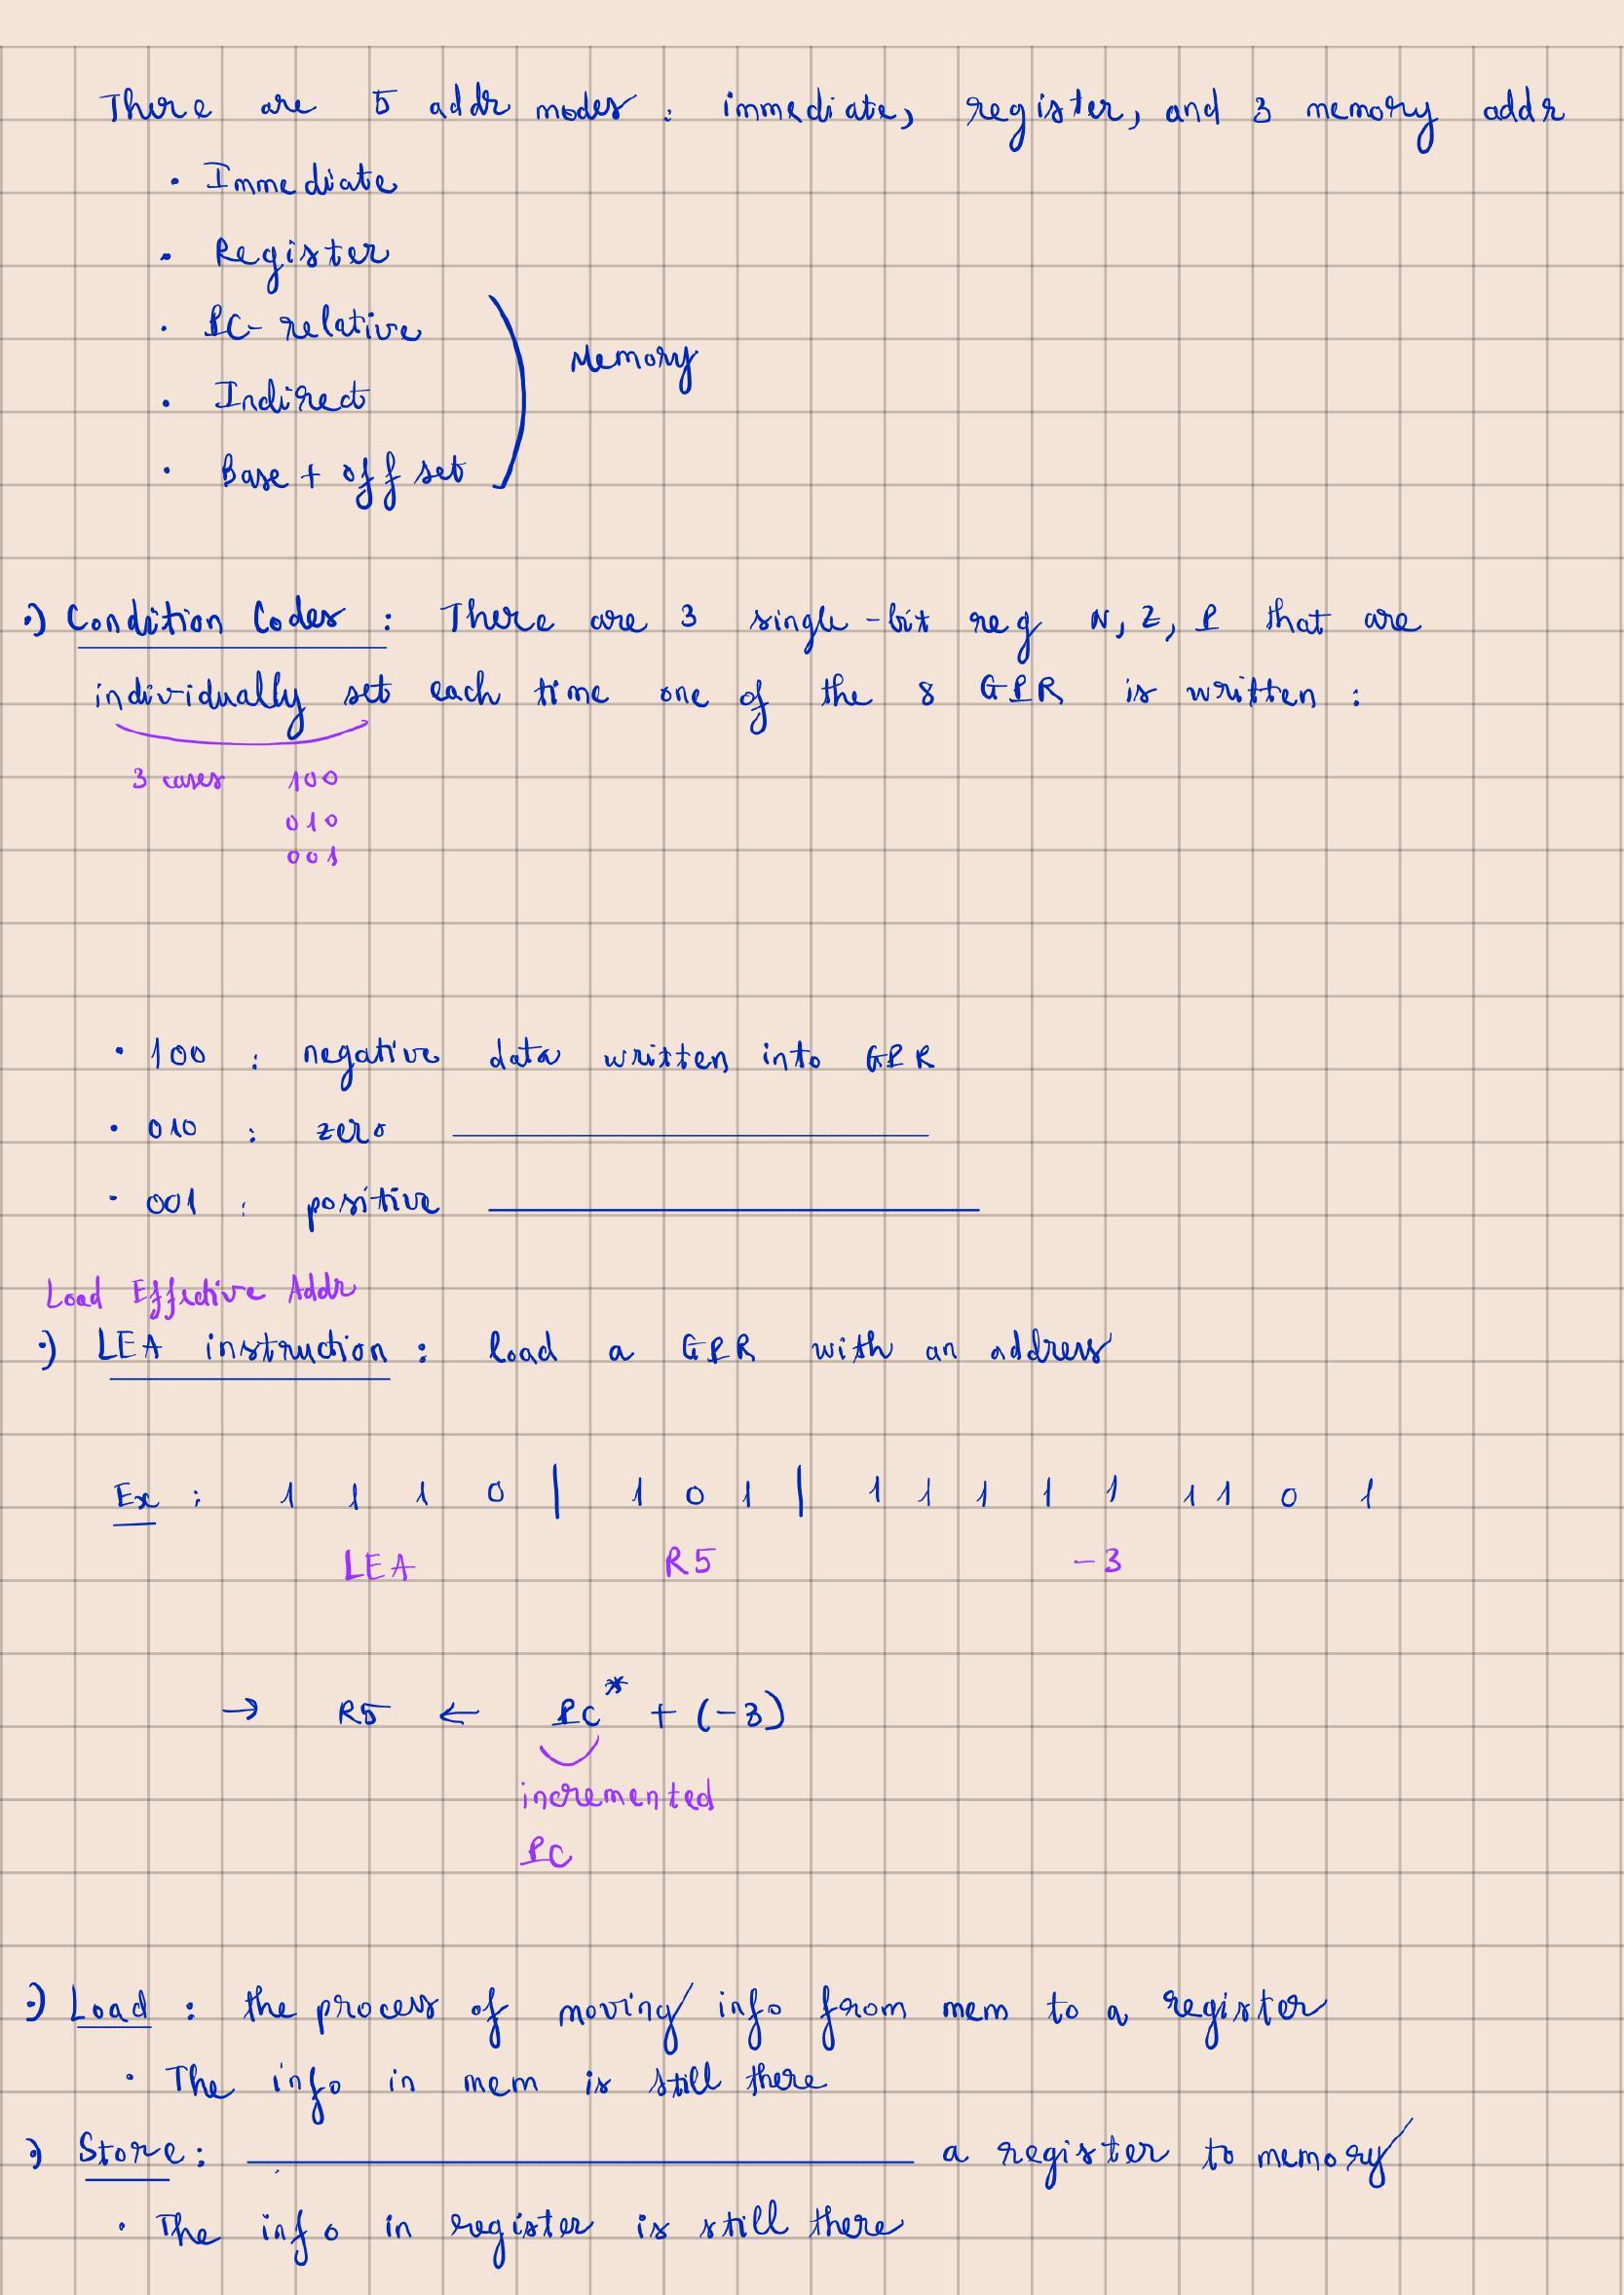 There are 5 addr modes : immediate, register, and 3 memory addr
• Immediate
• Register
• PC-relative
Memory
• Indirect
• Base + offset
•) Condition Codes : There are 3 single-bit reg N, Z, P that are
individually set each time one of the 8 GPR is written :
3 cases 100
010
001
• 100 : negative data written into GPR
• 010 : zero
• 001 : positive
Load Effective Addr
•) LEA instruction : load a GPR with an address
Ex : 1 1 1 0 | 1 0 1 | 1 1 1 1 1 1 1 0 1
LEA R5 -3
→ R5 ← PC* + (-3)
incremented
PC
•) Load : the process of moving info from mem to a register
• The info in mem is still there
•) Store : a register to memory
• The info in register is still there